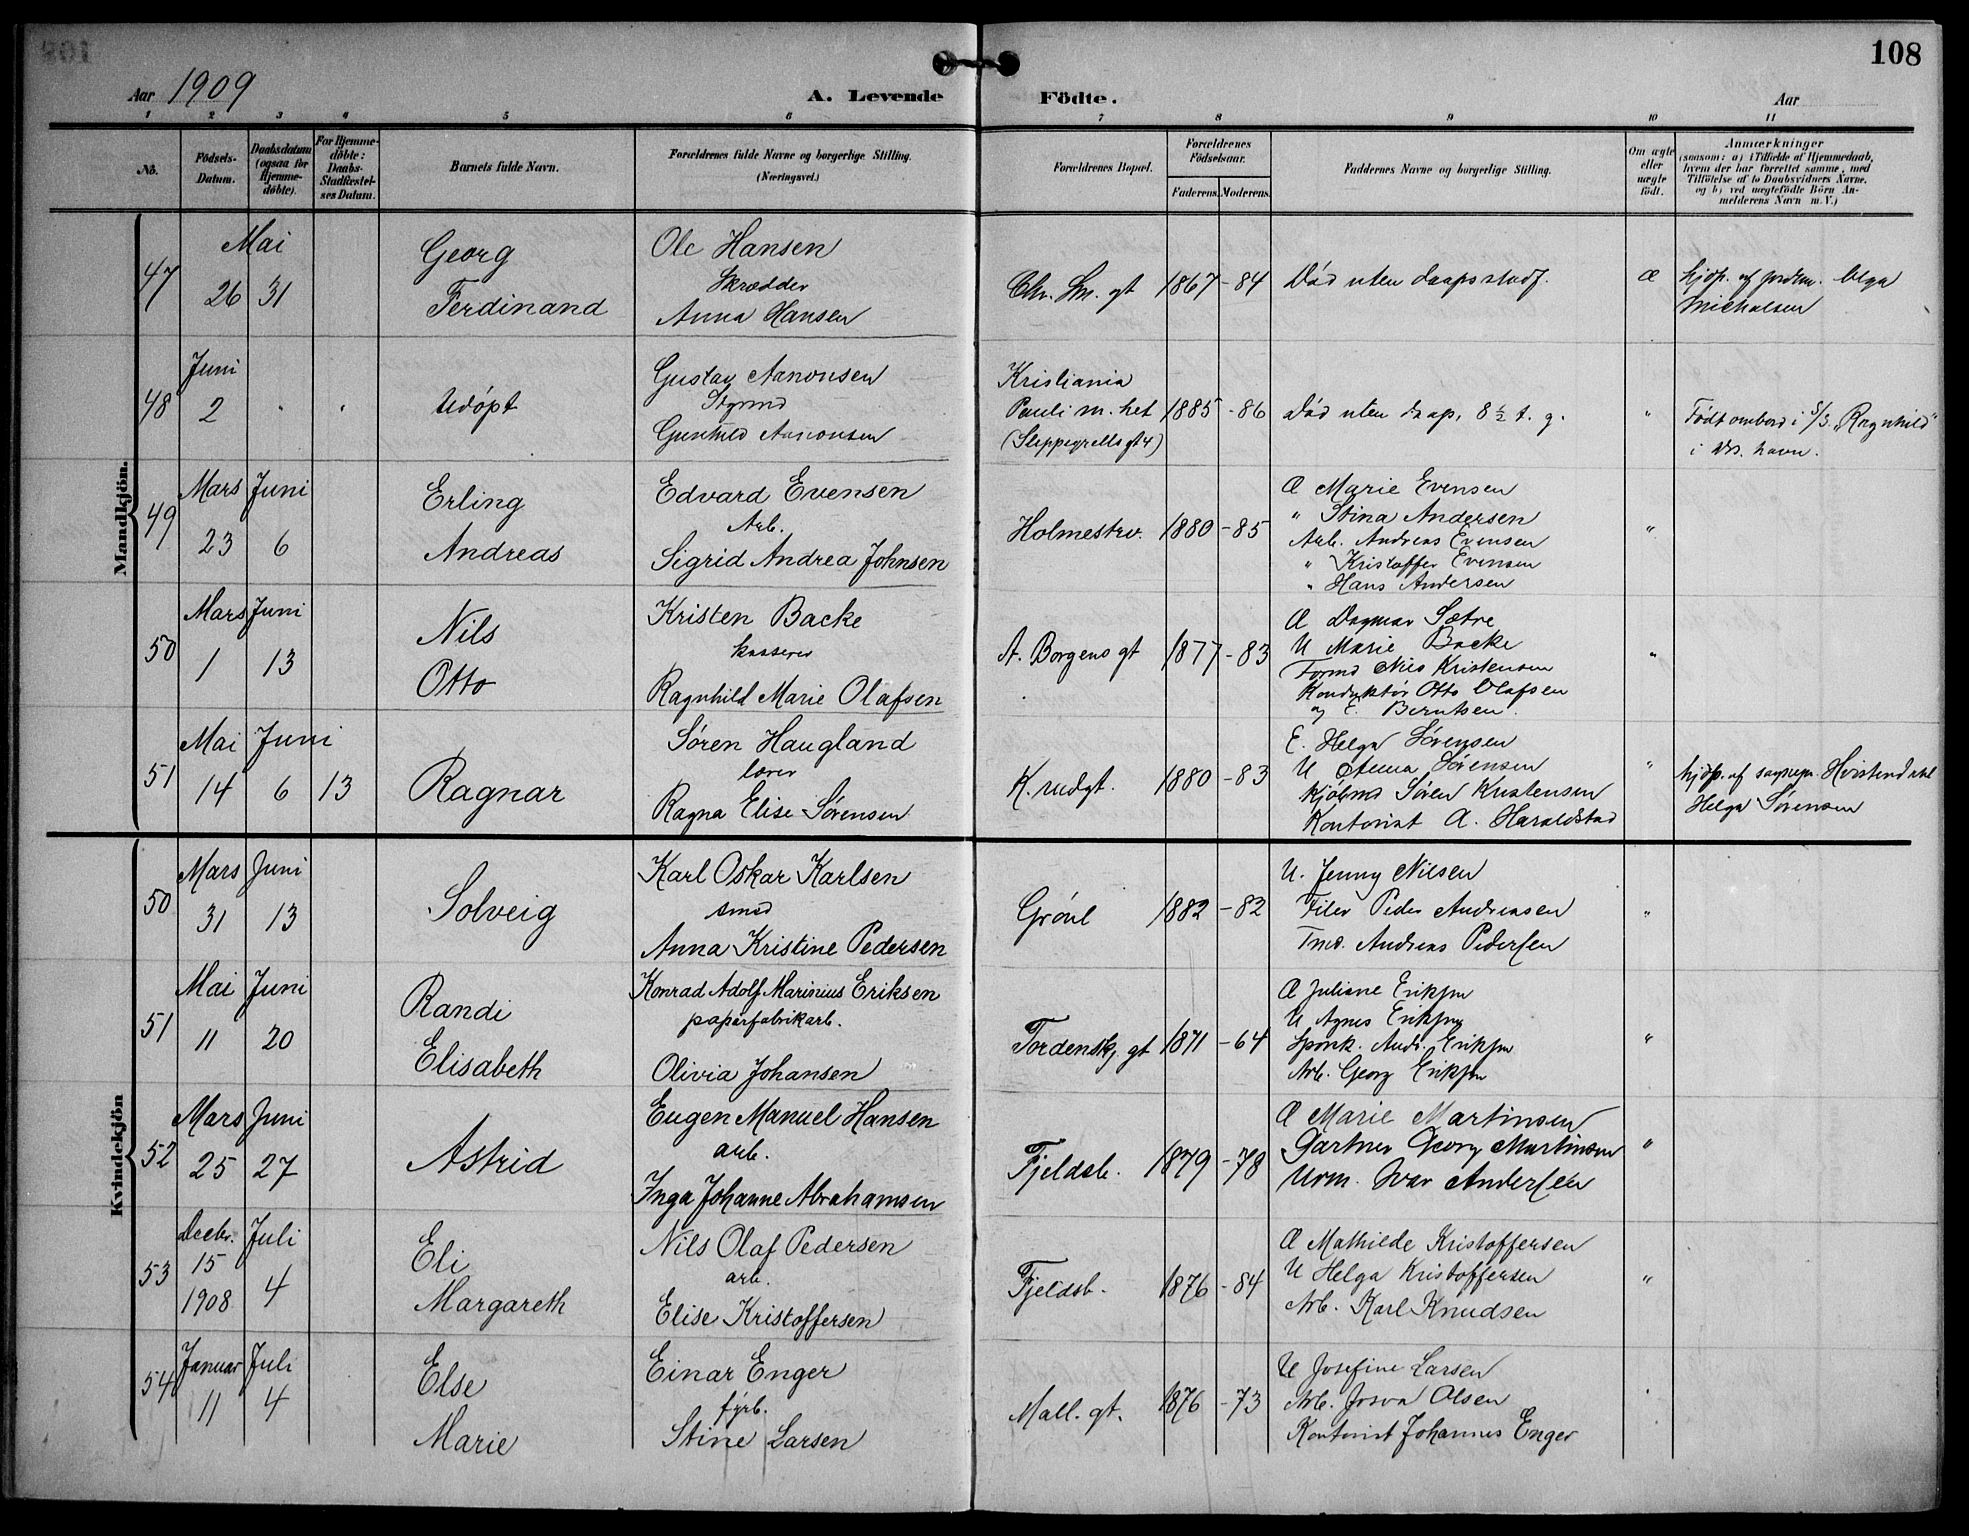 108
Aar 1909 A. Levende Födte. Aar
1 2 3 4 5 6 7 8 9 10 11
No.
Födsels-Datum.
Daabsdatum (ogsaa for Hjemmedöbte).
For Hjemmedöbte: Daabs-Stadfæstelses Datum.
Barnets fulde Navn.
Forældrenes fulde Navne og borgerlige Stilling.
(Næringsvei.)
Forældrenes Bopæl.
Forældrenes Födselsaar.
Faderens. Moderens.
Faddernes Navne og borgerlige Stilling.
Om ægte eller uægte födt.
Anmærkninger
(saasom: a) i Tilfælde af Hjemmedaab,
hvem der har forrettet samme, med
Tilföielse af to Daabsvidners Navne.
og b) ved uægtefödte Börn An-
melderens Navn m. V.)
Mandkjön.
47 Mai 26 31
Georg
Ferdinand
Ole Hansen
Skrædder
Anna Hansen
Chr. Sm. gt 1867 - 84
Død uten daapsstadf.
Æ
hjdp. af jordm. Olga
Michalsen
48 Juni 2
Udøpt
Gustav Aanonsen
Styrmd
Gunhild Aanonsen
Kristiania
Pauli m. het
(Sleppegrells gt 4)
1885 - 86
Død uten daap, 8 ½ t. g.
"
Født ombord i S/S. "Ragnhild"
i Drs. havn.
49 Mars 23 Juni 6
Erling
Andreas
Edvard Evensen
Arb.
Sigrid Andrea Johnsen
Holmestrv. 1880 - 85
Æ Marie Evensen
" Stina Andersen
Arb. Andreas Evensen
" Kristoffer Evensen
" Hans Andersen
"
50 Mars 1 Juni 13
Nils
Otto
Kristen Backe
kasserer
Ragnhild Marie Olafsen
A. Borgens gt 1877 - 83
Æ Dagmar Sætre
U Marie Backe
Formd Nils Kristensen
Konduktør Otto Olafsen
og E. Berntsen.
"
51 Mai 14 Juni 6 13
Ragnar
Søren Haugland
lærer
Ragna Elise Sørensen
K. rudgt. 1880 - 83
E. Helga Sørensen
U Anna Sørensen
Kjøbmd Søren Kristensen
Kontorist A. Haraldstad
"
hjdp. af sognepr. Hvistendahl
Helga Sørensen
Kvindekjön
50 Mars 31 Juni 13
Solveig
Karl Oskar Karlsen
smed
Anna Kristine Pedersen
Grønl 1882 - 82
U. Jenny Nilsen
Filer Peder Andreasen
Tmd. Andreas Pedersen
"
51 Mai 11 Juni 20
Randi
Elisabeth
Konrad Adolf Marinius Eriksen
papirfabrikarb.
Olivia Johansen
Tordenskj. gt 1871 - 64
Æ Juliane Eriksen
U Agnes Eriksen
Spork. Andr. Eriksen
Arb. Georg Eriksen
"
52 Mars 25 Juni 27
Astrid
Eugen Manuel Hansen
arb.
Inga Johanne Abrahamsen
Fjeldsb. 1879 - 78
Æ Marie Martinsen
Gartner Georg Martinsen
Urm. Ivar Andersen
"
53 Decbr. 15 1908 Juli 4
Eli
Margareth
Nils Olaf Pedersen
arb.
Elise Kristoffersen
Fjeldsb. 1876 - 84
Æ Mathilde Kristoffersen
U Helga Kristoffersen
Arb. Karl Knudsen
"
54 Januar 11 Juli 4
Else
Marie
Einar Enger
fyrb.
Stine Larsen
Mall. gt. 1876 - 73
U Josefine Larsen
Arb. Josva Olsen
Kontorist Johannes Enger